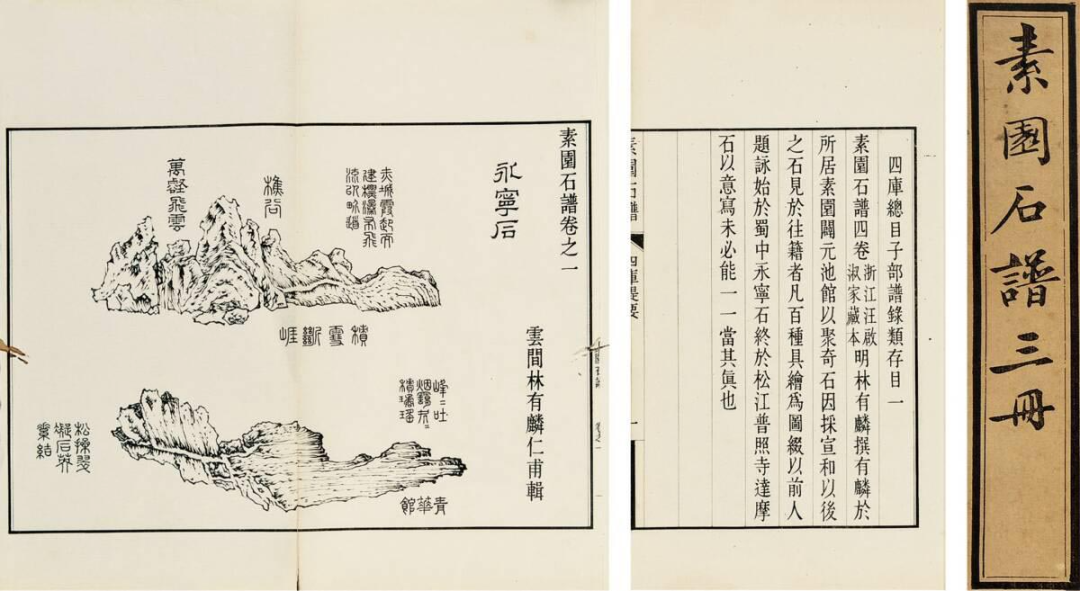 素園石譜三冊
四庫總目子部譜錄類存目一
素園石譜四卷浙江汪啟淑家藏本明林有麟撰有麟於
所居素園闢元池館以聚奇石因採宣和以後
之石見於往籍者凡百種具繪爲圖綴以前人
題詠始於蜀中永寧石終於松江普照寺達摩
石以意寫未必能一一當其眞也
素園石譜
四庫提要
素園石譜卷之一
雲間林有麟仁甫輯
永寧石
赤城霞起而
建標瀑布飛
流以界道
樵谷
萬壑飛雲
積雪斷崖
峰〻吐
青華館